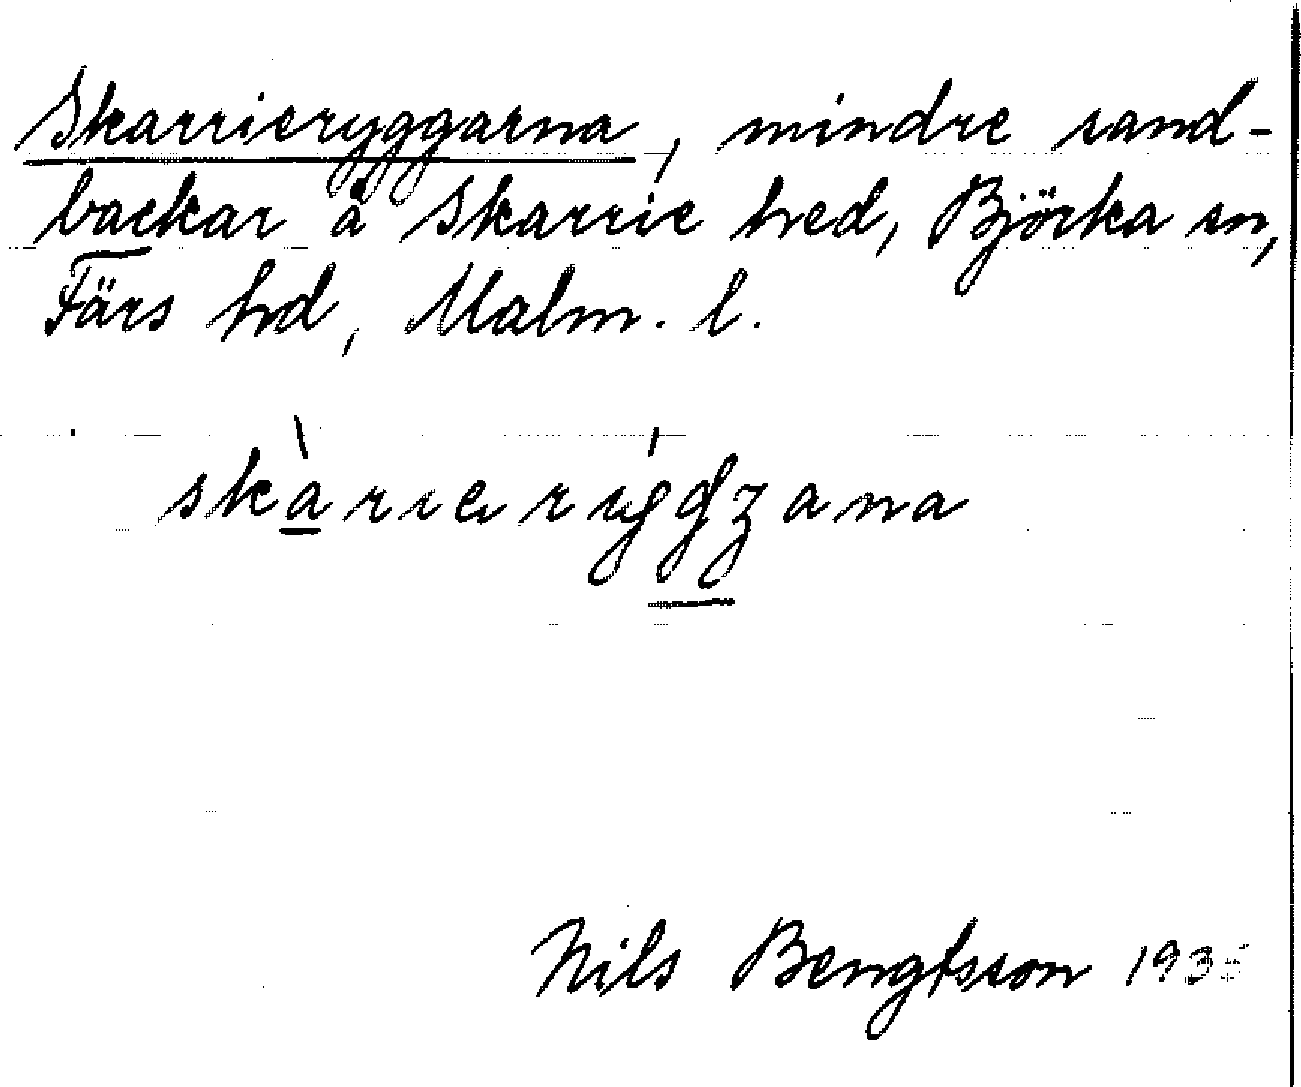 Skarrieryggarna, mindre sand-
backar å Skarrie hed, Björka sn,
Färs hd, Malm. l.
Nils Bengtsson 1935